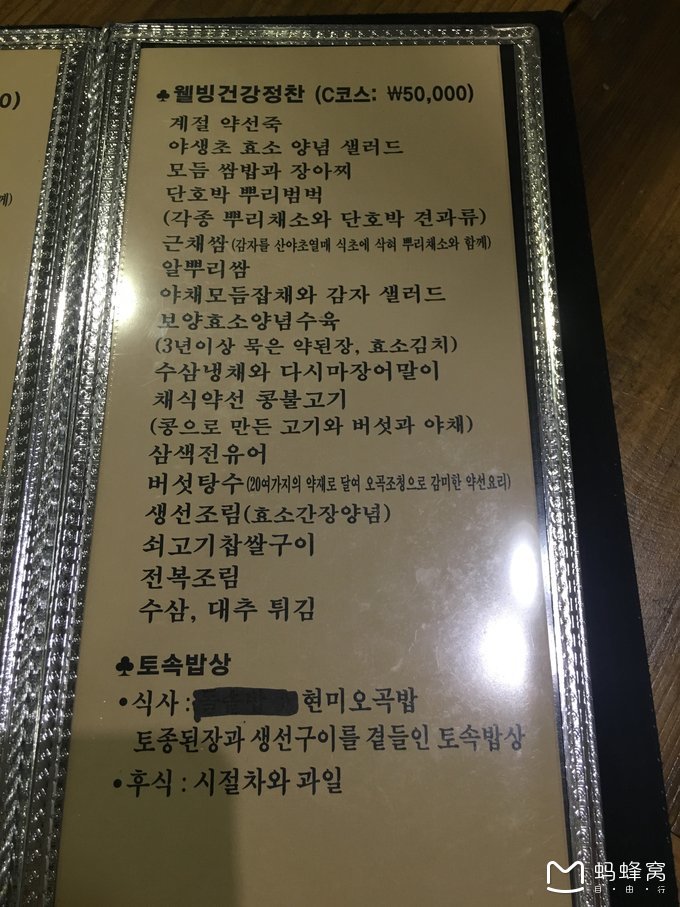 0)
께)
♣웰빙건강정찬 (C코스: ₩50,000)
계절 약선죽
야생초 효소 양념 샐러드
모듬 쌈밥과 장아찌
단호박 뿌리범벅
(각종 뿌리채소와 단호박 견과류)
근채쌈(감자를 산야초열매 식초에 삭혀 뿌리채소와 함께)
알뿌리쌈
야채모듬잡채와 감자 샐러드
보양효소양념수육
(3년이상 묵은 약된장, 효소김치)
수삼냉채와 다시마장어말이
채식약선 콩불고기
(콩으로 만든 고기와 버섯과 야채)
삼색전유어
버섯탕수(20여가지의 약재로 달여 오곡조청으로 감미한 약선요리)
생선조림(효소간장양념)
쇠고기찹쌀구이
전복조림
수삼, 대추 튀김
♣토속밥상
•식사 : 현미오곡밥
토종된장과 생선구이를 곁들인 토속밥상
•후식 : 시절차와 과일
蚂蜂窝
自·由·行